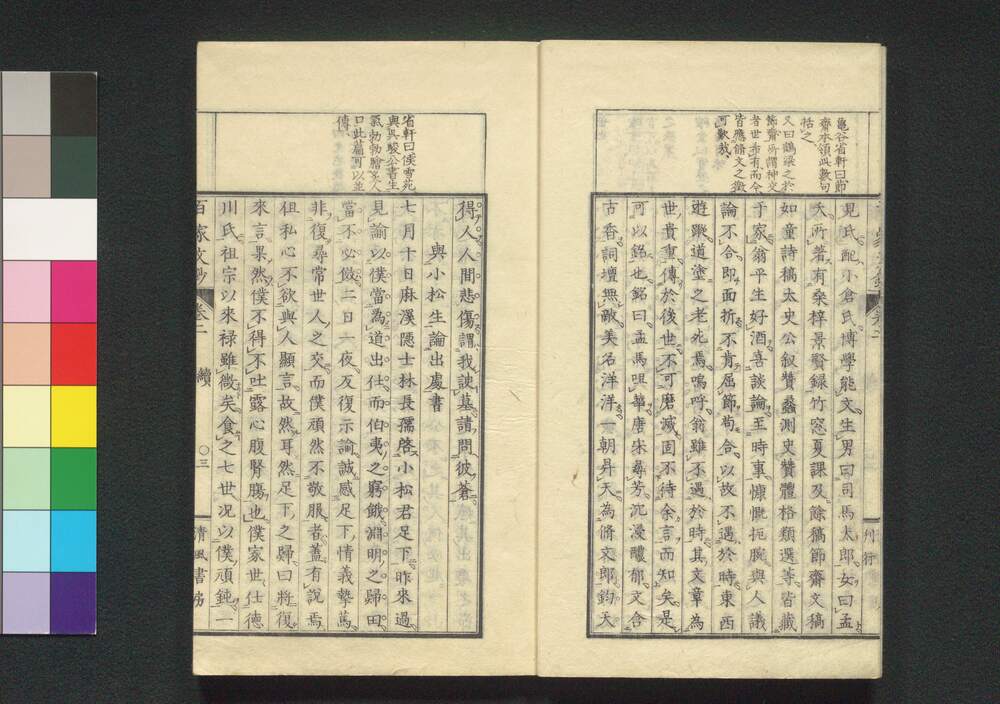 龜谷省軒曰節
齋本領此數句
括之
又曰鶴梁之於
節齋所謂神交
者世希有而今
皆應脩文之徵
可歎哉
見氏配小倉氏博學能文生男曰司馬太郎女曰孟
夭所著有桑梓景賢録竹窓夏課及餘稿節齋文稿
如童詩稿太史公叙贊蠡測史贊體格類選等皆藏
于家翁平生好酒喜談論至時事慷慨扼腕與人議
論不合即面折不肯屈節苟合以故不遇於時東西
遊蹤道塗之老死焉嗚呼翁雖不遇於時其文章為
世貴重傳於後世不可磨滅固不待余言而知矣是
可以銘也銘曰孟馬咀華唐宋尋芳沉浸醲郁文含
古香詞壇無敵美名洋洋一朝丹天為脩文郎鈞天
刊行
省軒曰侯雪苑
與吳駿公書生
氣勃勃膾炙人
口此篇可以並
傳
得人人間悲傷謂我諛墓請問彼蒼
與小松生論出處書
七月十日麻溪隱士林長孺啓小松君足下昨來過
見諭以僕當為道出仕而伯夷之窮餓淵明之歸田
當不必做二日一夜反復示諭誠感足下情義摯篤
非復尋常世人之交而僕頑然不敬服者蓋有說焉
徂私心不欲與人顯言故然耳然足下之歸曰將復
來言果然僕不得不吐露心腹腎膓也僕家世仕德
川氏祖宗以來祿雖微矣食之七世况以僕頑鈍一
百家文鈔 卷二 續 〇三 清風書房